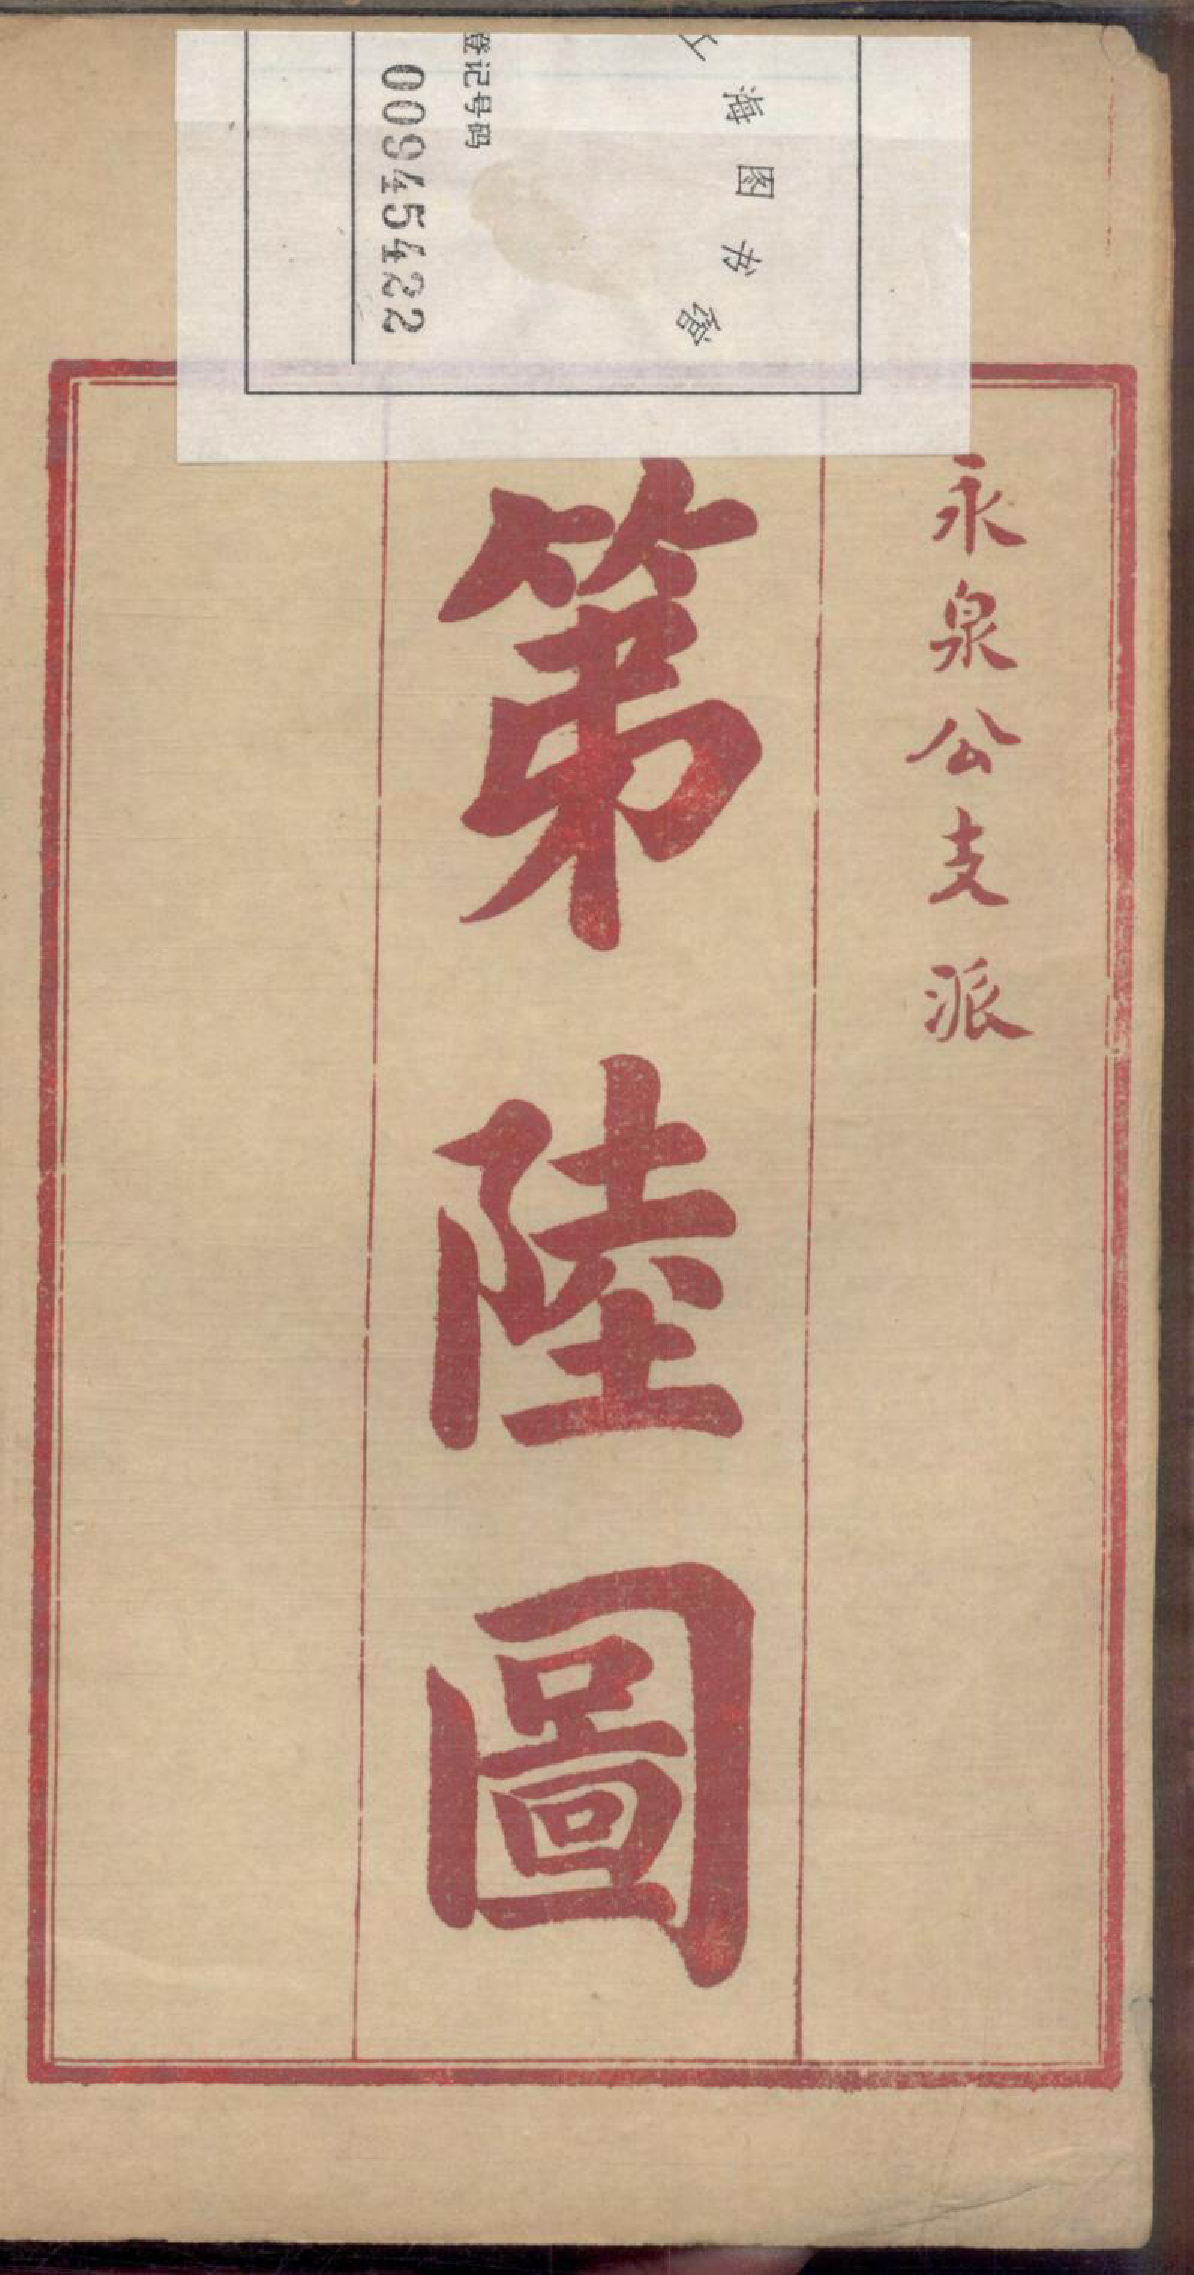 海图书馆
登记号码
00945422
永泉公支派
第陸圖